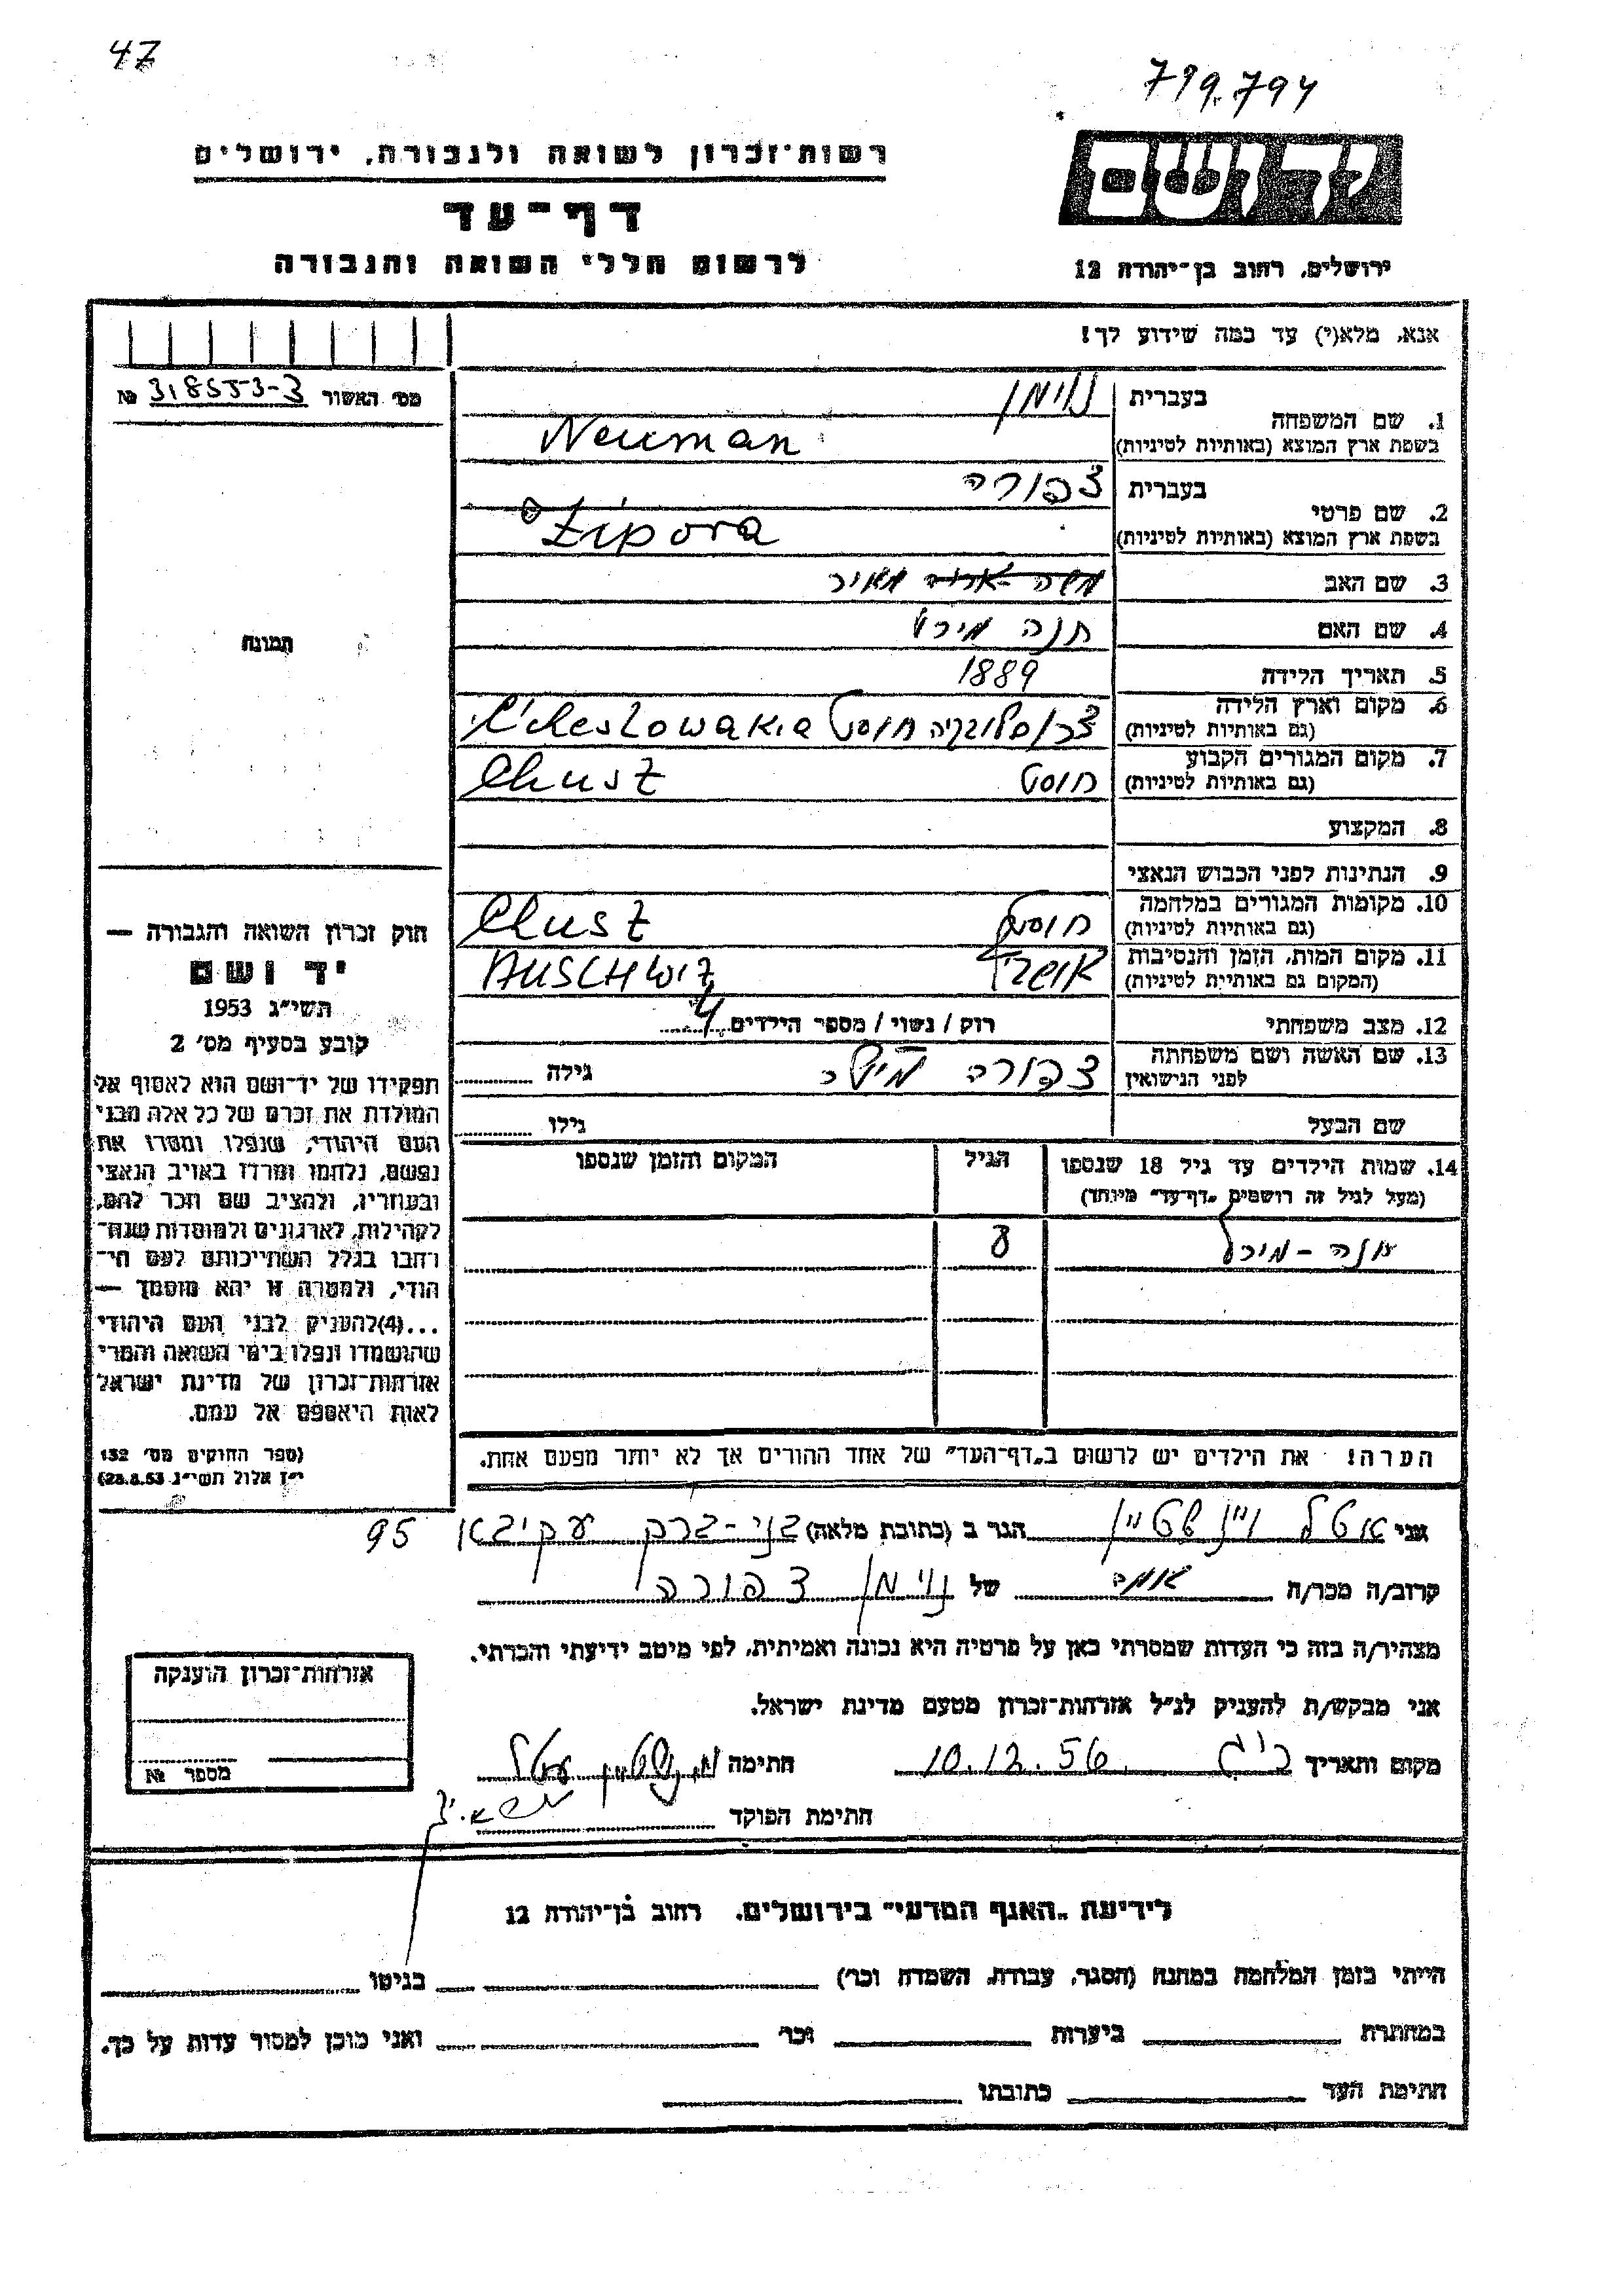 47
719.794
רשות־זכרון לשואה ולגבורה, ירושלים
דף־עד
לרשום חללי השואה והגבורה
יד ושם
ירושלים, רחוב בן־יהודה 12
אנא, מלא(י) עד כמה שידוע לך!
מס׳ האשור № 318553-3
1. שם המשפחה
בעברית נוימן
בשפת ארץ המוצא (באותיות לטיניות) Neuman
2. שם פרטי
בעברית צפורה
בשפת ארץ המוצא (באותיות לטיניות) Zipora
3. שם האב מאיר
4. שם האם חנה
5. תאריך הלידה 1889
6. מקום וארץ הלידה
(גם באותיות לטיניות) חוסט
7. מקום המגורים הקבוע
(גם באותיות לטיניות) חוסט Chusz
8. המקצוע
9. הנתינות לפני הכבוש הנאצי
10. מקומות המגורים במלחמה
(גם באותיות לטיניות) חוסט Chusz
11. מקום המות, הזמן והנסיבות
(המקום גם באותיית לטיניות) AUSCHWIZ
12. מצב משפחתי רוק / נשוי / מספר הילדים 4
13. שם האשה ושם משפחתה
לפני הנישואין צפורה גילה
שם הבעל גילו
14. שמות הילדים עד גיל 18 שנספו הגיל המקום והזמן שנספו
(מעל לגיל זה רושמים „דף־עד” מיוחד)
הערה! את הילדים יש לרשום ב„דף־העד” של אחד ההורים אך לא יותר מפעם אחת.
תמונה
חוק זכרון השואה והגבורה —
יד ושם
תשי״ג 1953
קובע בסעיף מס׳ 2
תפקידו של יד־ושם הוא לאסוף אל
המולדת את זכרם של כל אלה מבני
העם היהודי, שנפלו ומסרו את
נפשם, נלחמו ומרדו באויב הנאצי
ובעוזריו, ולהציב שם וזכר להם,
לקהילות, לארגונים ולמוסדות שנח־
רחבו בגלל השתייכותם לעם הי־
הודי, ולמטרה זו יהא מוסמך —
...(4)להעניק לבני העם היהודי
שהושמדו ונפלו בימי השואה והמרי
אזרחות־זכרון של מדינת ישראל
לאות היאספם אל עמם.
(ספר החוקים מס׳ 132
י״ז אלול תשי״ג 28.8.53)
אני אטל ויינשטיין הגר ב (כתובת מלאה) בני-ברק עקיבא 95
קרוב/ה מכר/ה של נוימן צפורה
מצהיר/ה בזה כי העדות שמסרתי כאן על פרטיה היא נכונה ואמיתית, לפי מיטב ידיעתי והכרתי.
אני מבקש/ת להעניק לנ״ל אזרחות־זכרון מטעם מדינת ישראל.
מקום ותאריך 10.12.56 חתימה
חתימת הפוקד
אזרחות־זכרון הוענקה
מספר №
לידיעת „האגף המדעי” בירושלים, רחוב בן־יהודה 12
הייתי בזמן המלחמה במחנה (הסגר, עבודה, השמדה וכר׳) בגיטו
במחתרת ביערות וכר׳ ואני מוכן למסור עדות על כך.
חתימת העד כתובתו